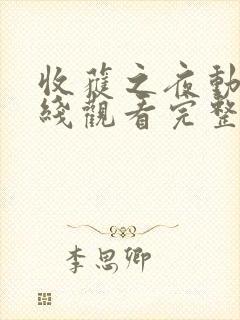 收蓷之夜動
綫觀看完整
李思卿